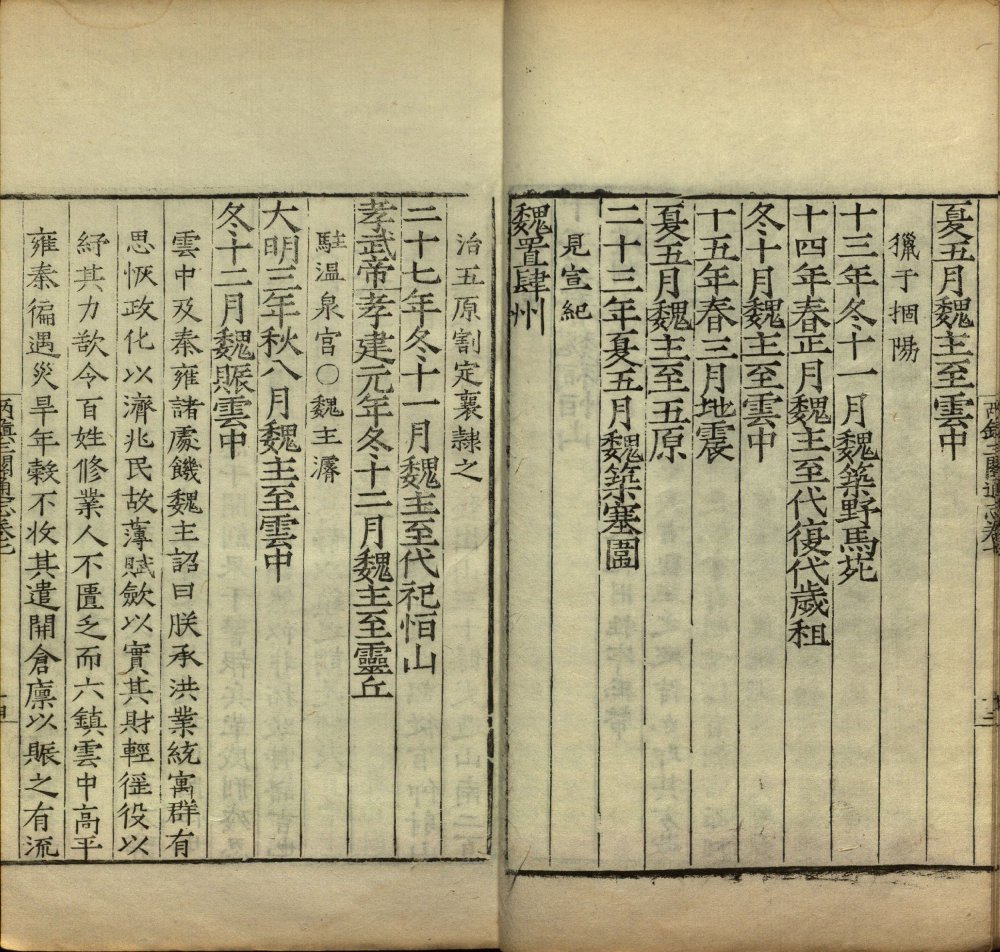 夏五月魏主至雲中
獵于㭽陽
十三年冬十一月魏築野馬苑
十四年春正月魏主至代復代歲租
冬十月魏主至雲中
十五年春三月地震
夏五月魏主至五原
二十三年夏五月魏築塞圍
見宣紀
魏置肆州
治五原割定襄隷之
二十七年冬十一月魏主至代祀恒山
孝武帝孝建元年冬十二月魏主至靈丘
駐温泉宫○魏主濬
大明三年秋八月魏主至雲中
冬十二月魏賑雲中
雲中及秦雍諸處饑魏主詔曰朕承洪業統寓群有
思恢政化以濟兆民故薄賦斂以實其財輕徭役以
紓其力欲令百姓修業人不匱乏而六鎮雲中高平
雍秦徧遇災旱年穀不收其遣開倉廪以賑之有流